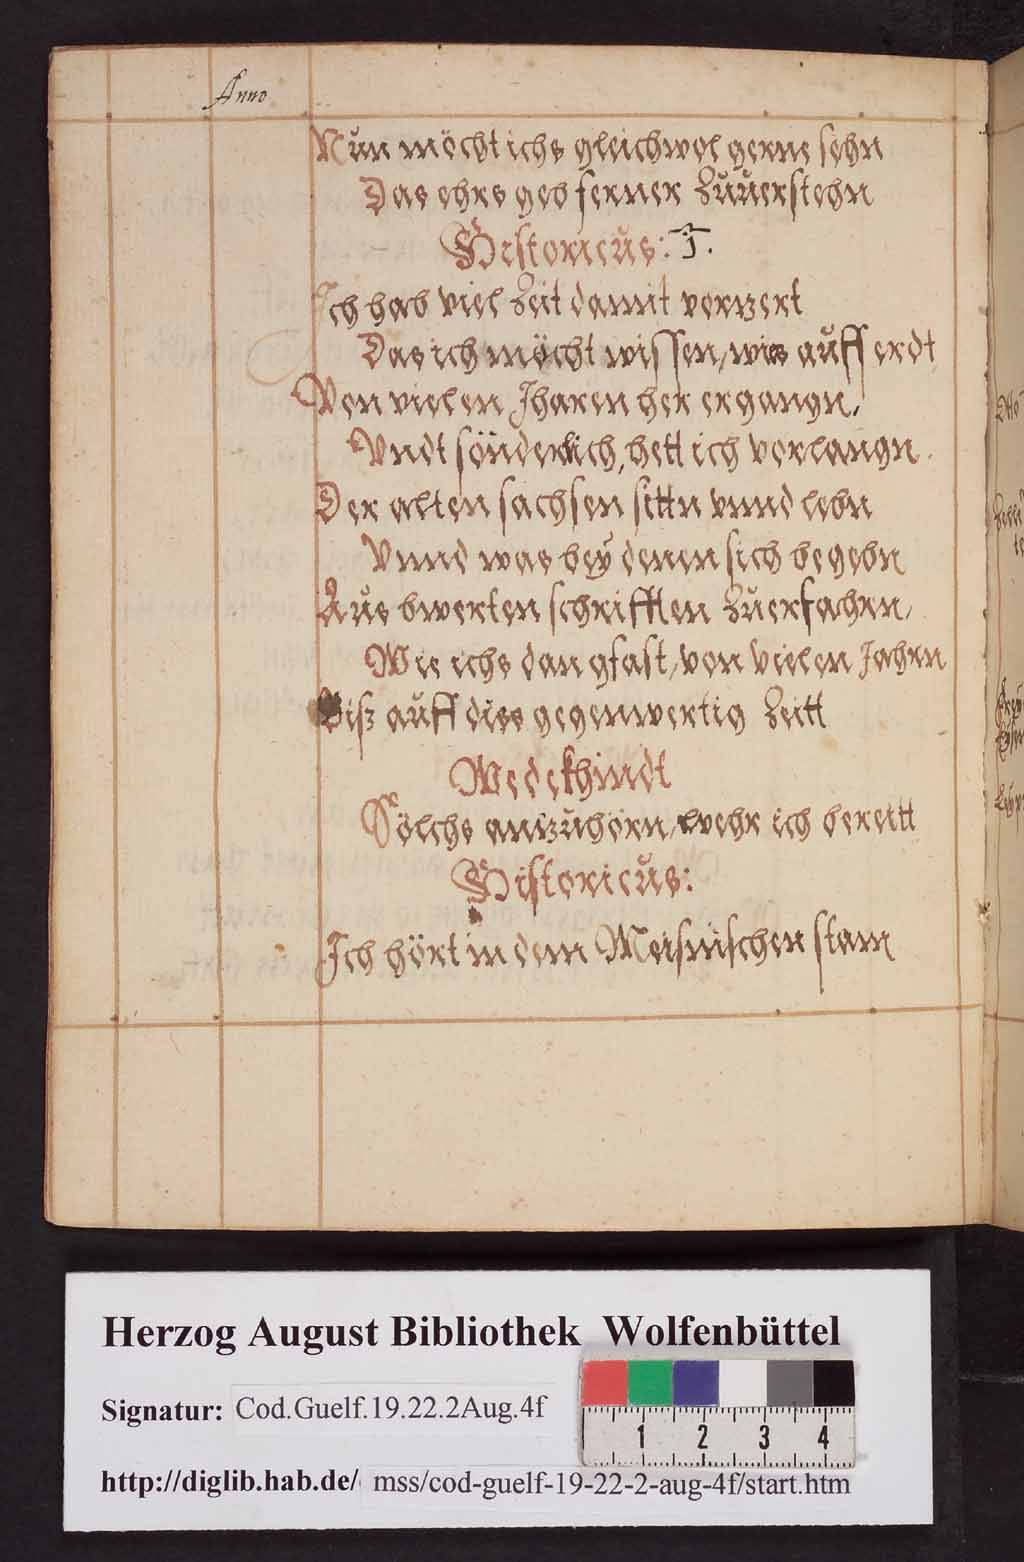 Anno
Nun möcht ichs gleichwol gerne sehn
Das ehrs geb ferner Zuuerstehn
Historicus: J.
Ich hab viel Zeit damit verzert
Das ich möcht wissen, wies auff erdt
Von vielen Jharen her ergangn,
Vndt sönderlich, hett ich vorlangn.
Der alten sachsen sittn vnnd lebn
Vnnd was beÿ denen sich begebn
Aus bwerten schrifften Zuerfahrn,
Wie ichs dan gfast, von vielen Jahrn
Biß auff dies gegenwertig Zeitt
Wedekhindt
Sölchs anzuhörn, wehr ich bereitt
Historicus:
Ich hört in dem Meisnischen stam
Herzog August Bibliothek Wolfenbüttel
Signatur: Cod.Guelf.19.22.2Aug.4f
1 2 3 4
http://diglib.hab.de/ mss/cod-guelf-19-22-2-aug-4f/start.htm